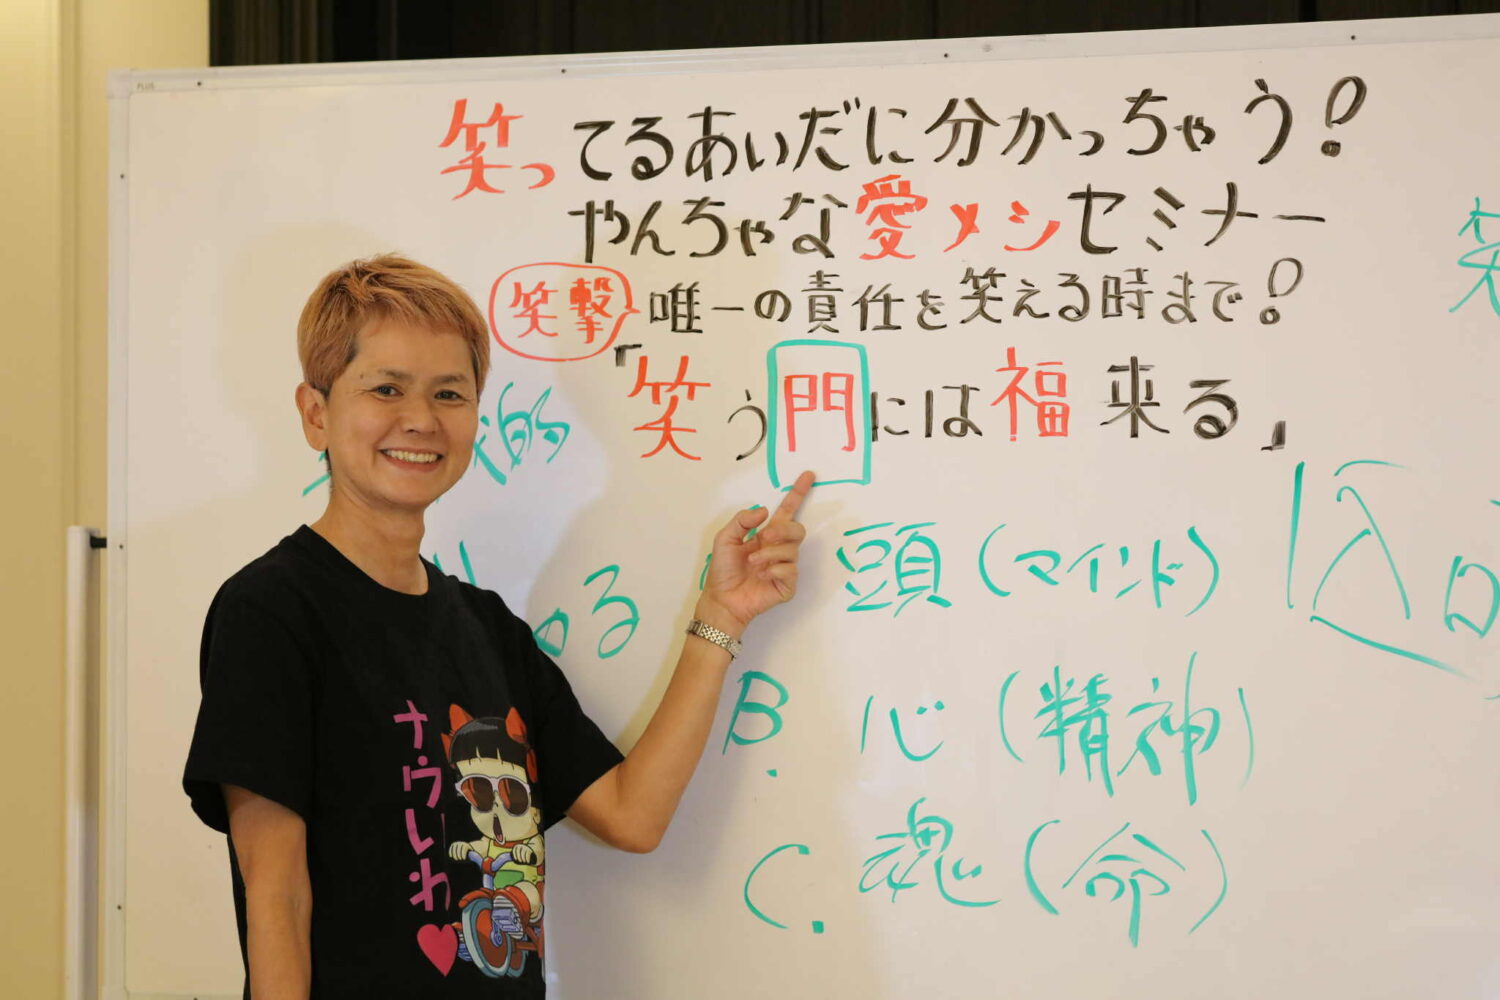 PLUS
笑ってるあいだに分かっちゃう!
やんちゃな愛メシセミナー
笑撃 唯一の責任を笑える時まで!
「笑う門には福来る」
的
頭(マインド)
ゆる
B. 心(精神)
C. 魂(命)
笑
ナウしわ♥